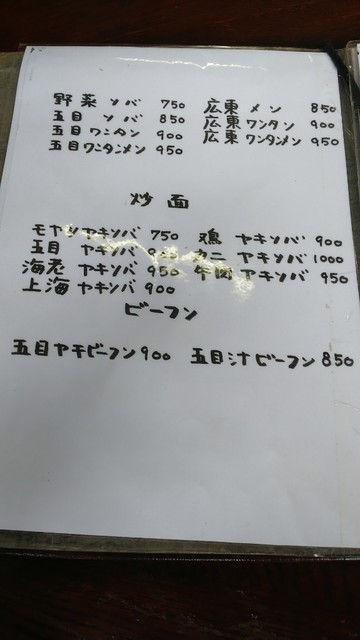 野菜 ソバ 750 広東 メン 850
五目 ソバ 850 広東 ワンタン 900
五目 ワンタン 900 広東 ワンタンメン 950
五目 ワンタンメン 950
炒面
モヤシ ヤキソバ 750 鶏 ヤキソバ 900
五目 ヤキソバ カニ ヤキソバ 1000
海老 ヤキソバ 950 牛肉 ヤキソバ 950
上海 ヤキソバ 900
ビーフン
五目 ヤキビーフン 900 五目汁ビーフン 850